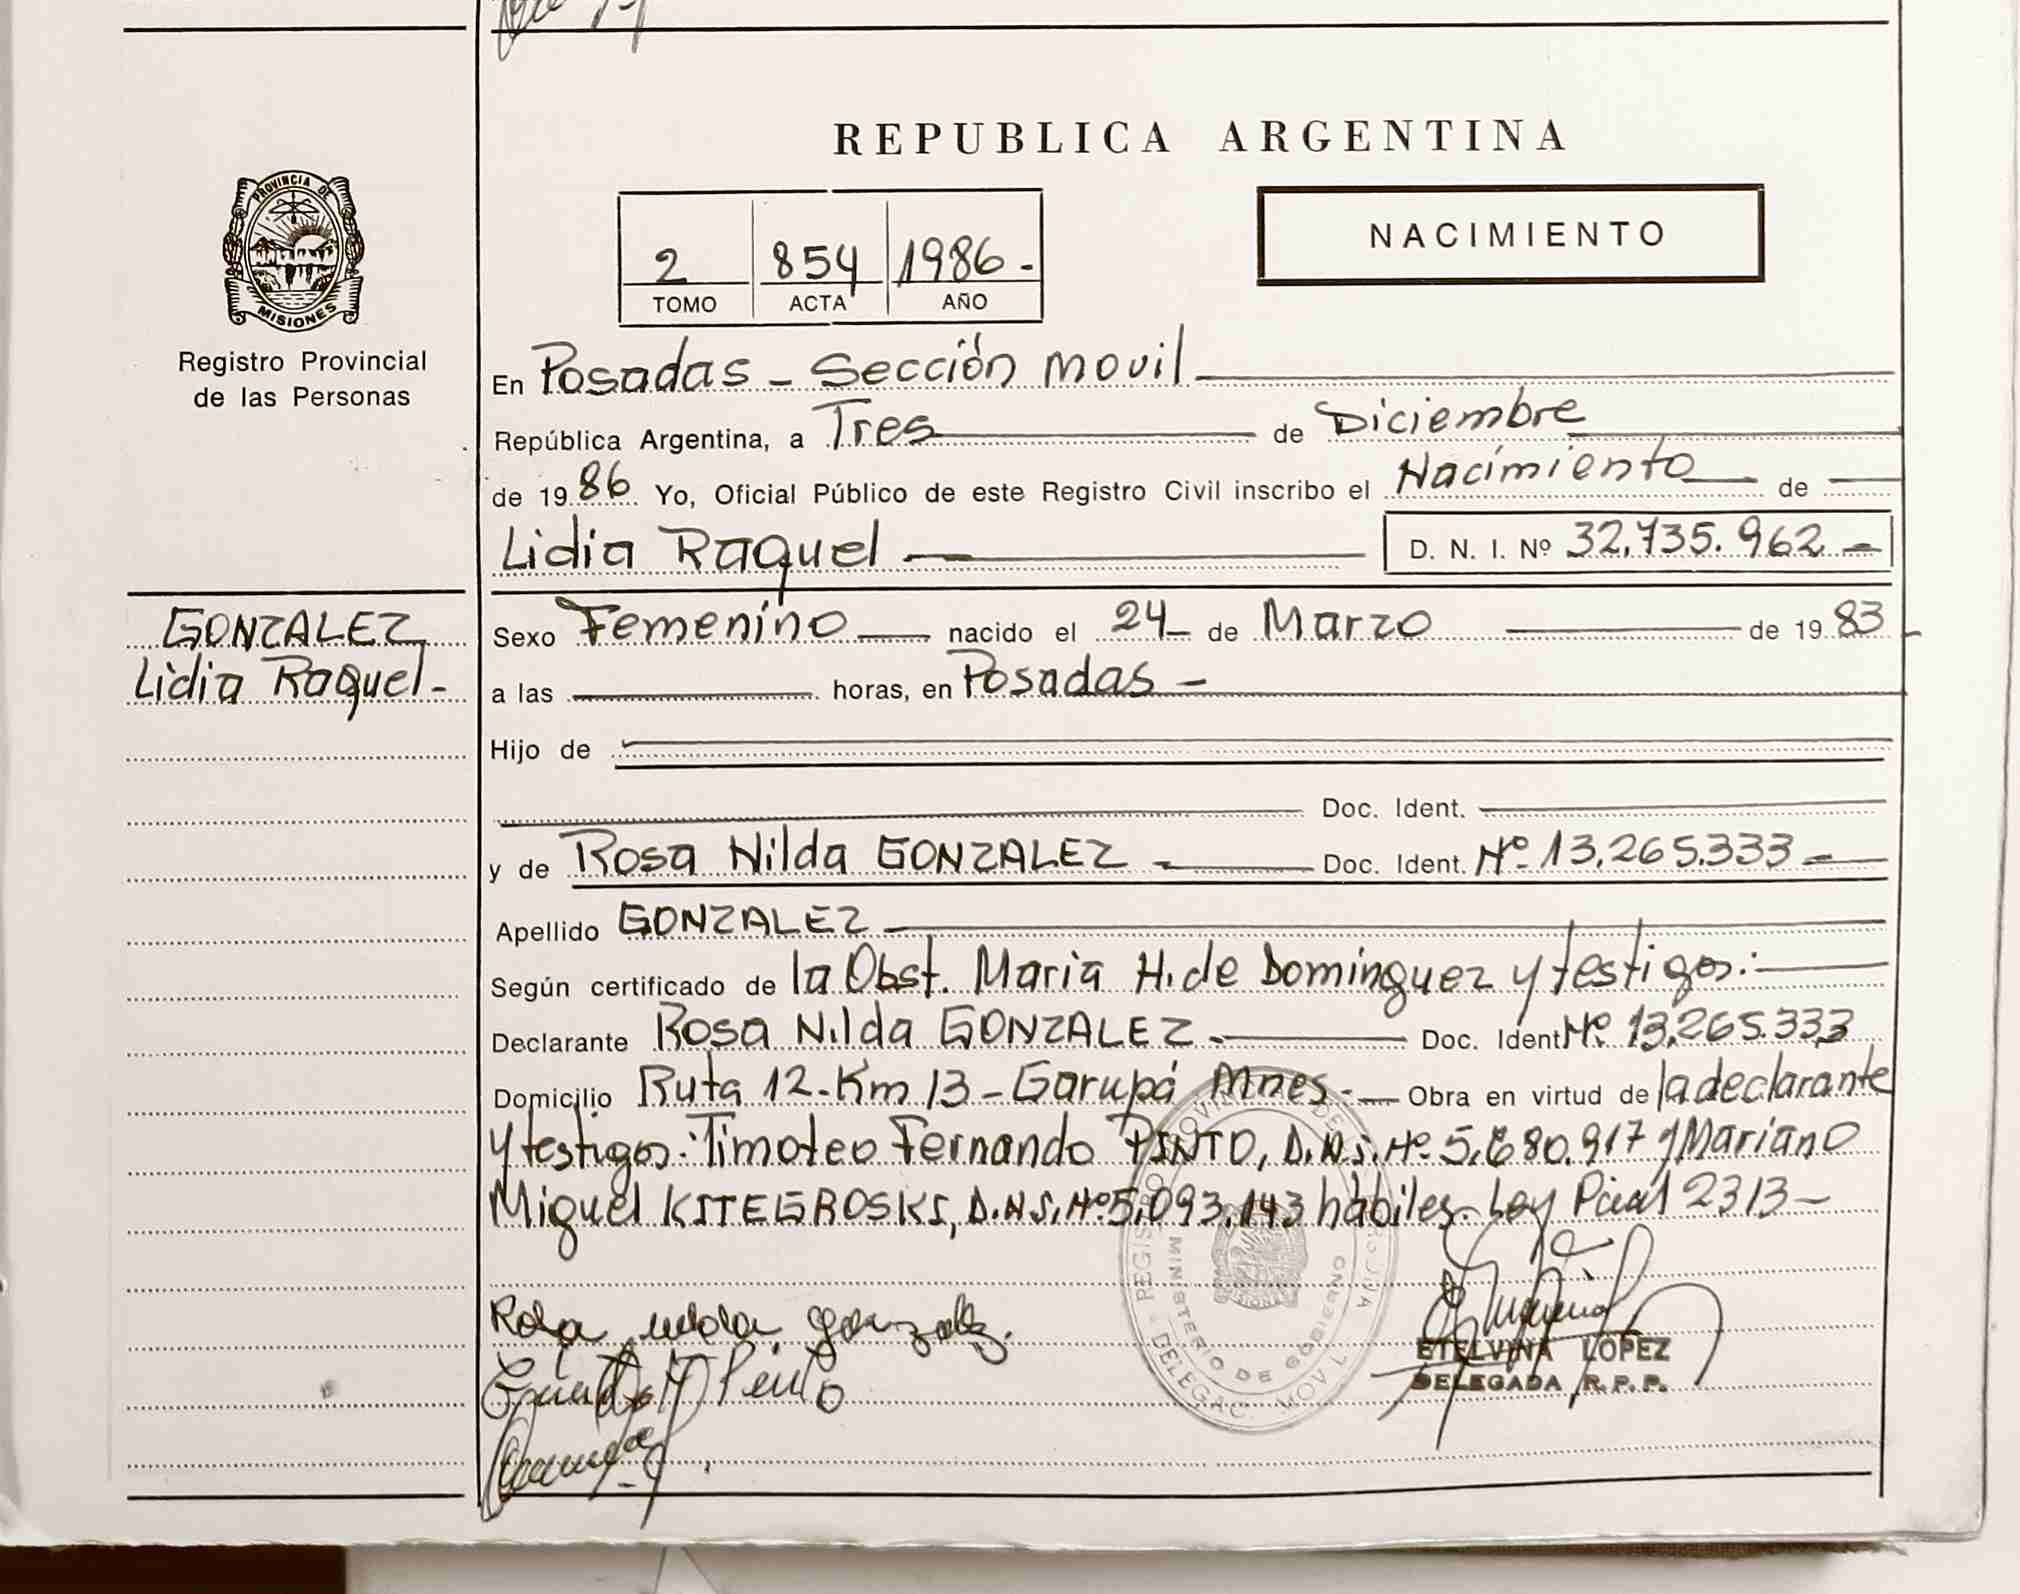 REPUBLICA ARGENTINA
PROVINCIA DE
MISIONES
Registro Provincial
de las Personas
NACIMIENTO
2 854 1986 -
TOMO ACTA AÑO
En Posadas - Sección movil
República Argentina, a Tres de Diciembre
de 19 86 Yo, Oficial Público de este Registro Civil inscribo el Nacimiento de
Lidia Raquel D. N. I. Nº 32.735.962 -
GONZALEZ
Lidia Raquel -
Sexo Femenino nacido el 24 de Marzo de 19 83
a las horas, en Posadas -
Hijo de
Doc. Ident.
y de Rosa Nilda GONZALEZ - Doc. Ident. Nº 13.265.333 -
Apellido GONZALEZ
Según certificado de la Obst. Maria H. de Dominguez y testigos: -
Declarante Rosa Nilda GONZALEZ - Doc. Ident Nº 13.265.333
Domicilio Ruta 12 - Km 13 - Garupá Mnes - Obra en virtud de la declarante
y testigos: Timoteo Fernando PINTO, D.N.I. Nº 5.680.917 y Mariano
Miguel KITEGROSKI, D.N.I. Nº 5.093.143 hábiles. Ley Pcial 2313 -
Rosa nilda gonzalez.
Pinto
REGISTRO
MINISTERIO DE GOBIERNO
DELEGAC. MOVIL
ETELVINA LOPEZ
DELEGADA R.P.P.